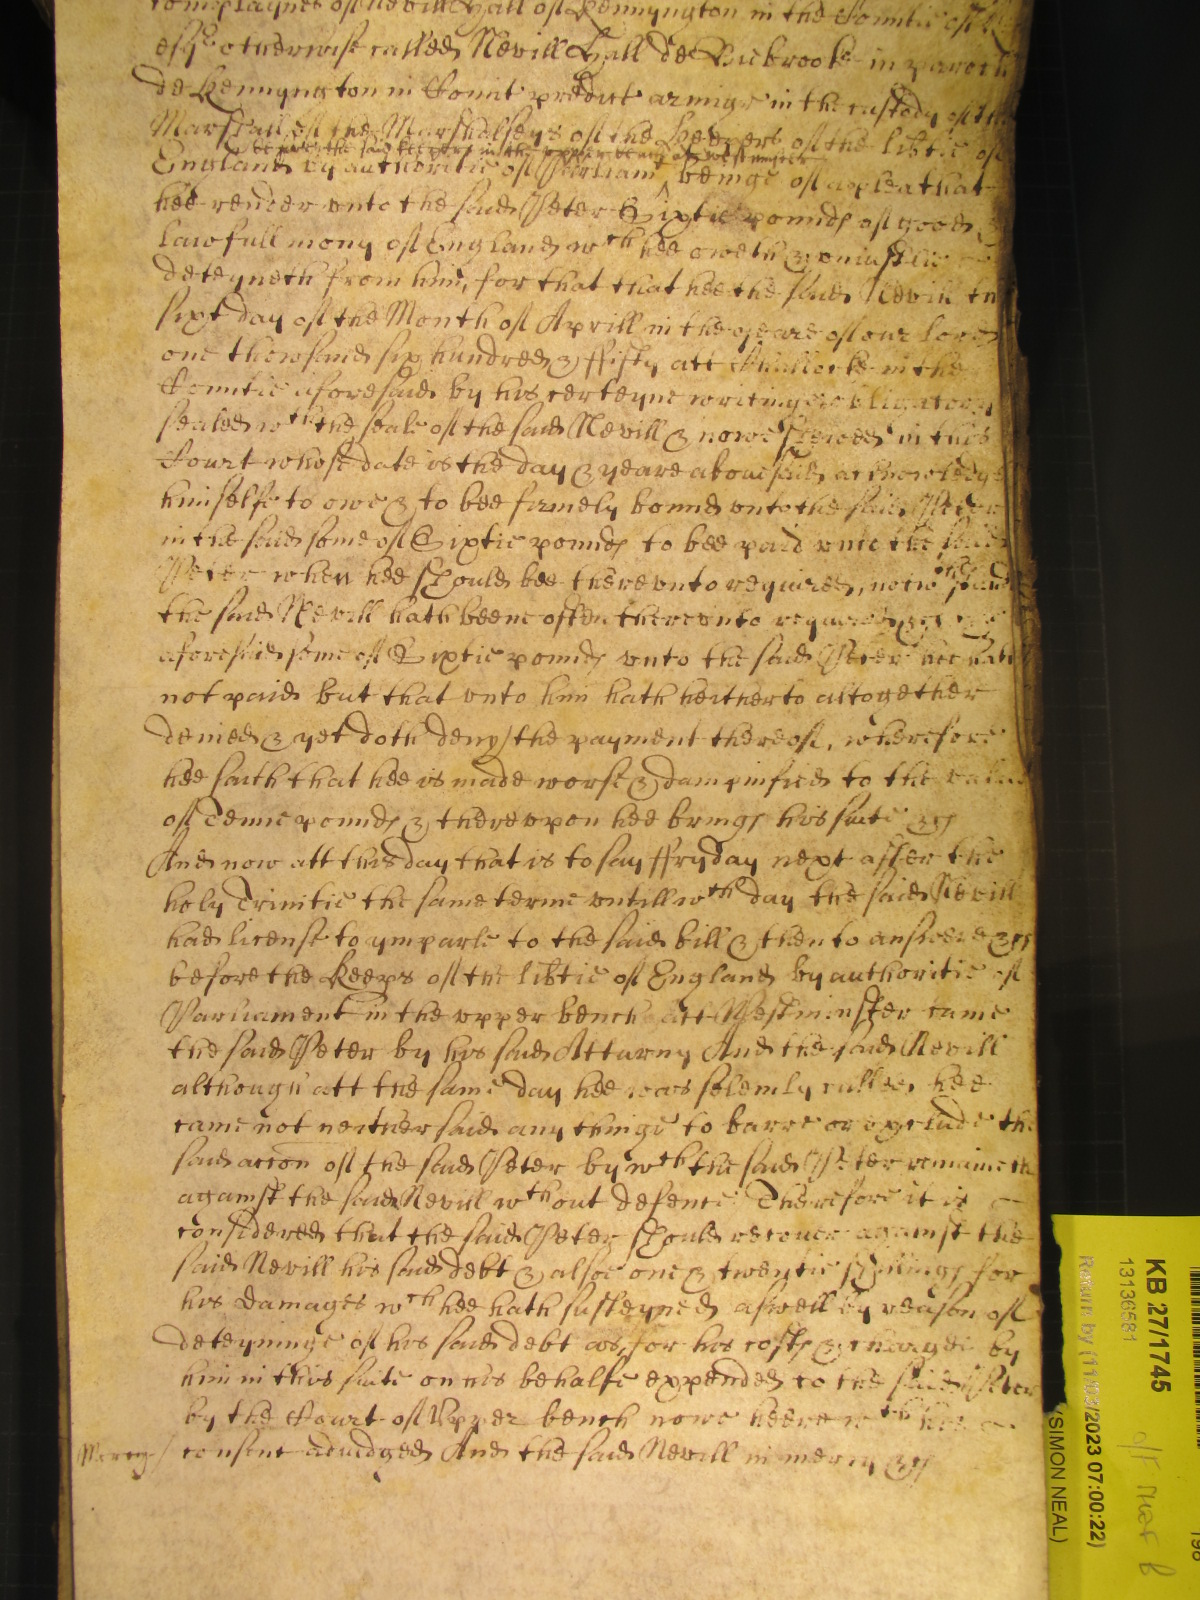 complaynes of Nevill Hall of Kennyngton in the Countie of
esqr otherwise called Nevill Hall de in paroch
de Kennyngton in Comit predict armigr in the custody of the
Marshall of the Marshalseys of the Keepers of the libtie of
before the said keepers in the upper bench att Westminster
England by authoritie of Parliam beinge of a plea that
hee render unto the said Peter Sixtie pounds of good &
lawfull mony of England wch hee oweth & uniustlie
deteyneth from him, for that that hee the said Nevill the
sixt day of the Month of Aprill in the yeare of our lord
one thowsand six hundred & ffifty att in the
Countie aforesaid by his certeyne writinge obligatory
sealed wth the seale of the said Nevill & nowe shewed in this
Court whose date is the day & yeare abovesaid acknowledge
himselfe to owe & to bee firmely bound unto the said Peter
in the said some of Sixtie pounds to bee paid unto the said
Peter when hee should bee thereunto required, notwthstand
the said Nevill hath beene often thereunto required &c the
aforesaid some of Sixtie pounds unto the said Peter hee hath
not paid but that unto him hath heitherto altogether
denied & yet doth deny the payment thereof, wherefore
hee saith that hee is made worse & dampnified to the value
of Tenne pounds & thereupon hee brings his suite &c
And now att this day that is to say ffryday next after the
holy Trinitie the same terme untill wch day the said Nevill
had license to ymparle to the said bill & then to answere &c
before the Keeps of the libtie of England by authoritie of
Parliament in the upper bench att Westminster came
the said Peter by his said Atturny And the said Nevill
although att the same day hee was solemly called hee
came not neither said any thinge to barre or exclude the
said accon of the said Peter by wch the said Peter remaineth
against the said Nevill wthout defence Therefore it is
considered that the said Peter should recover against the
said Nevill his said debt & alsoe one & twentie shillings for
his damages wch hee hath susteyned aswell by reason of
deteyninge of his said debt as for his costs & charges by
him in this suite on his behalfe expended to the said Peter
by the Court of Upper bench nowe heere wth his
Mercy consent adiudged And the said Nevill in mercy &c
KB 27/1745
13136581
Return by (11/03/2023 07:00:22)
(SIMON NEAL)
198